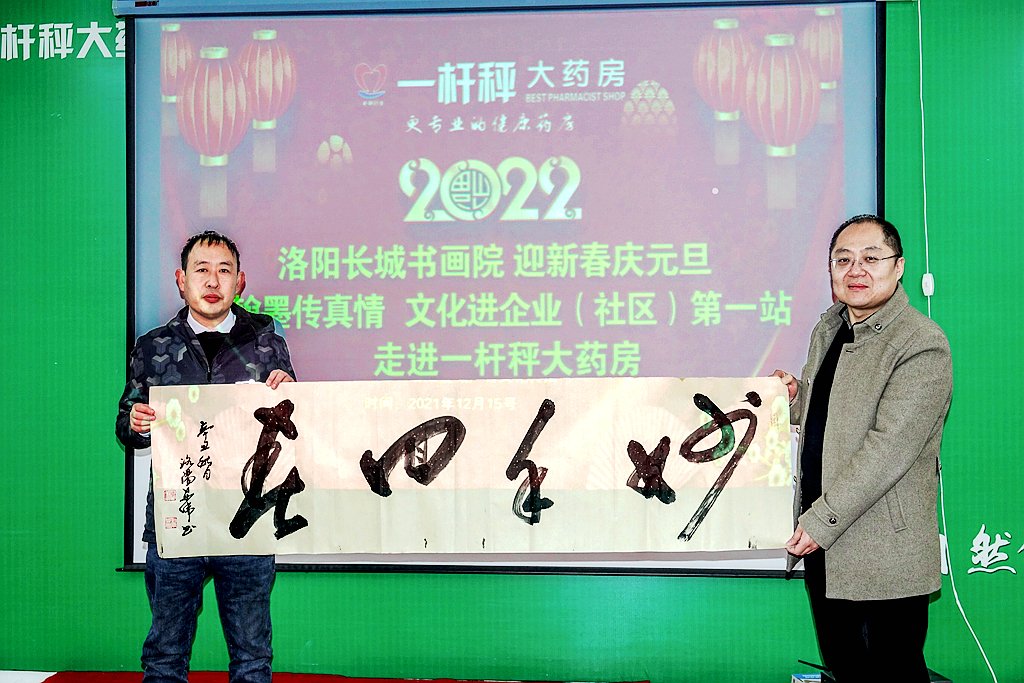 杆秤大药
一杆秤 大药房
BEST PHARMACIST SHOP
更专业的健康药房
2022
洛阳长城书画院 迎新春庆元旦
翰墨传真情 文化进企业（社区）第一站
走进一杆秤大药房
时间：2021年12月15号
妙手回春
辛丑秋月
洛阳
然